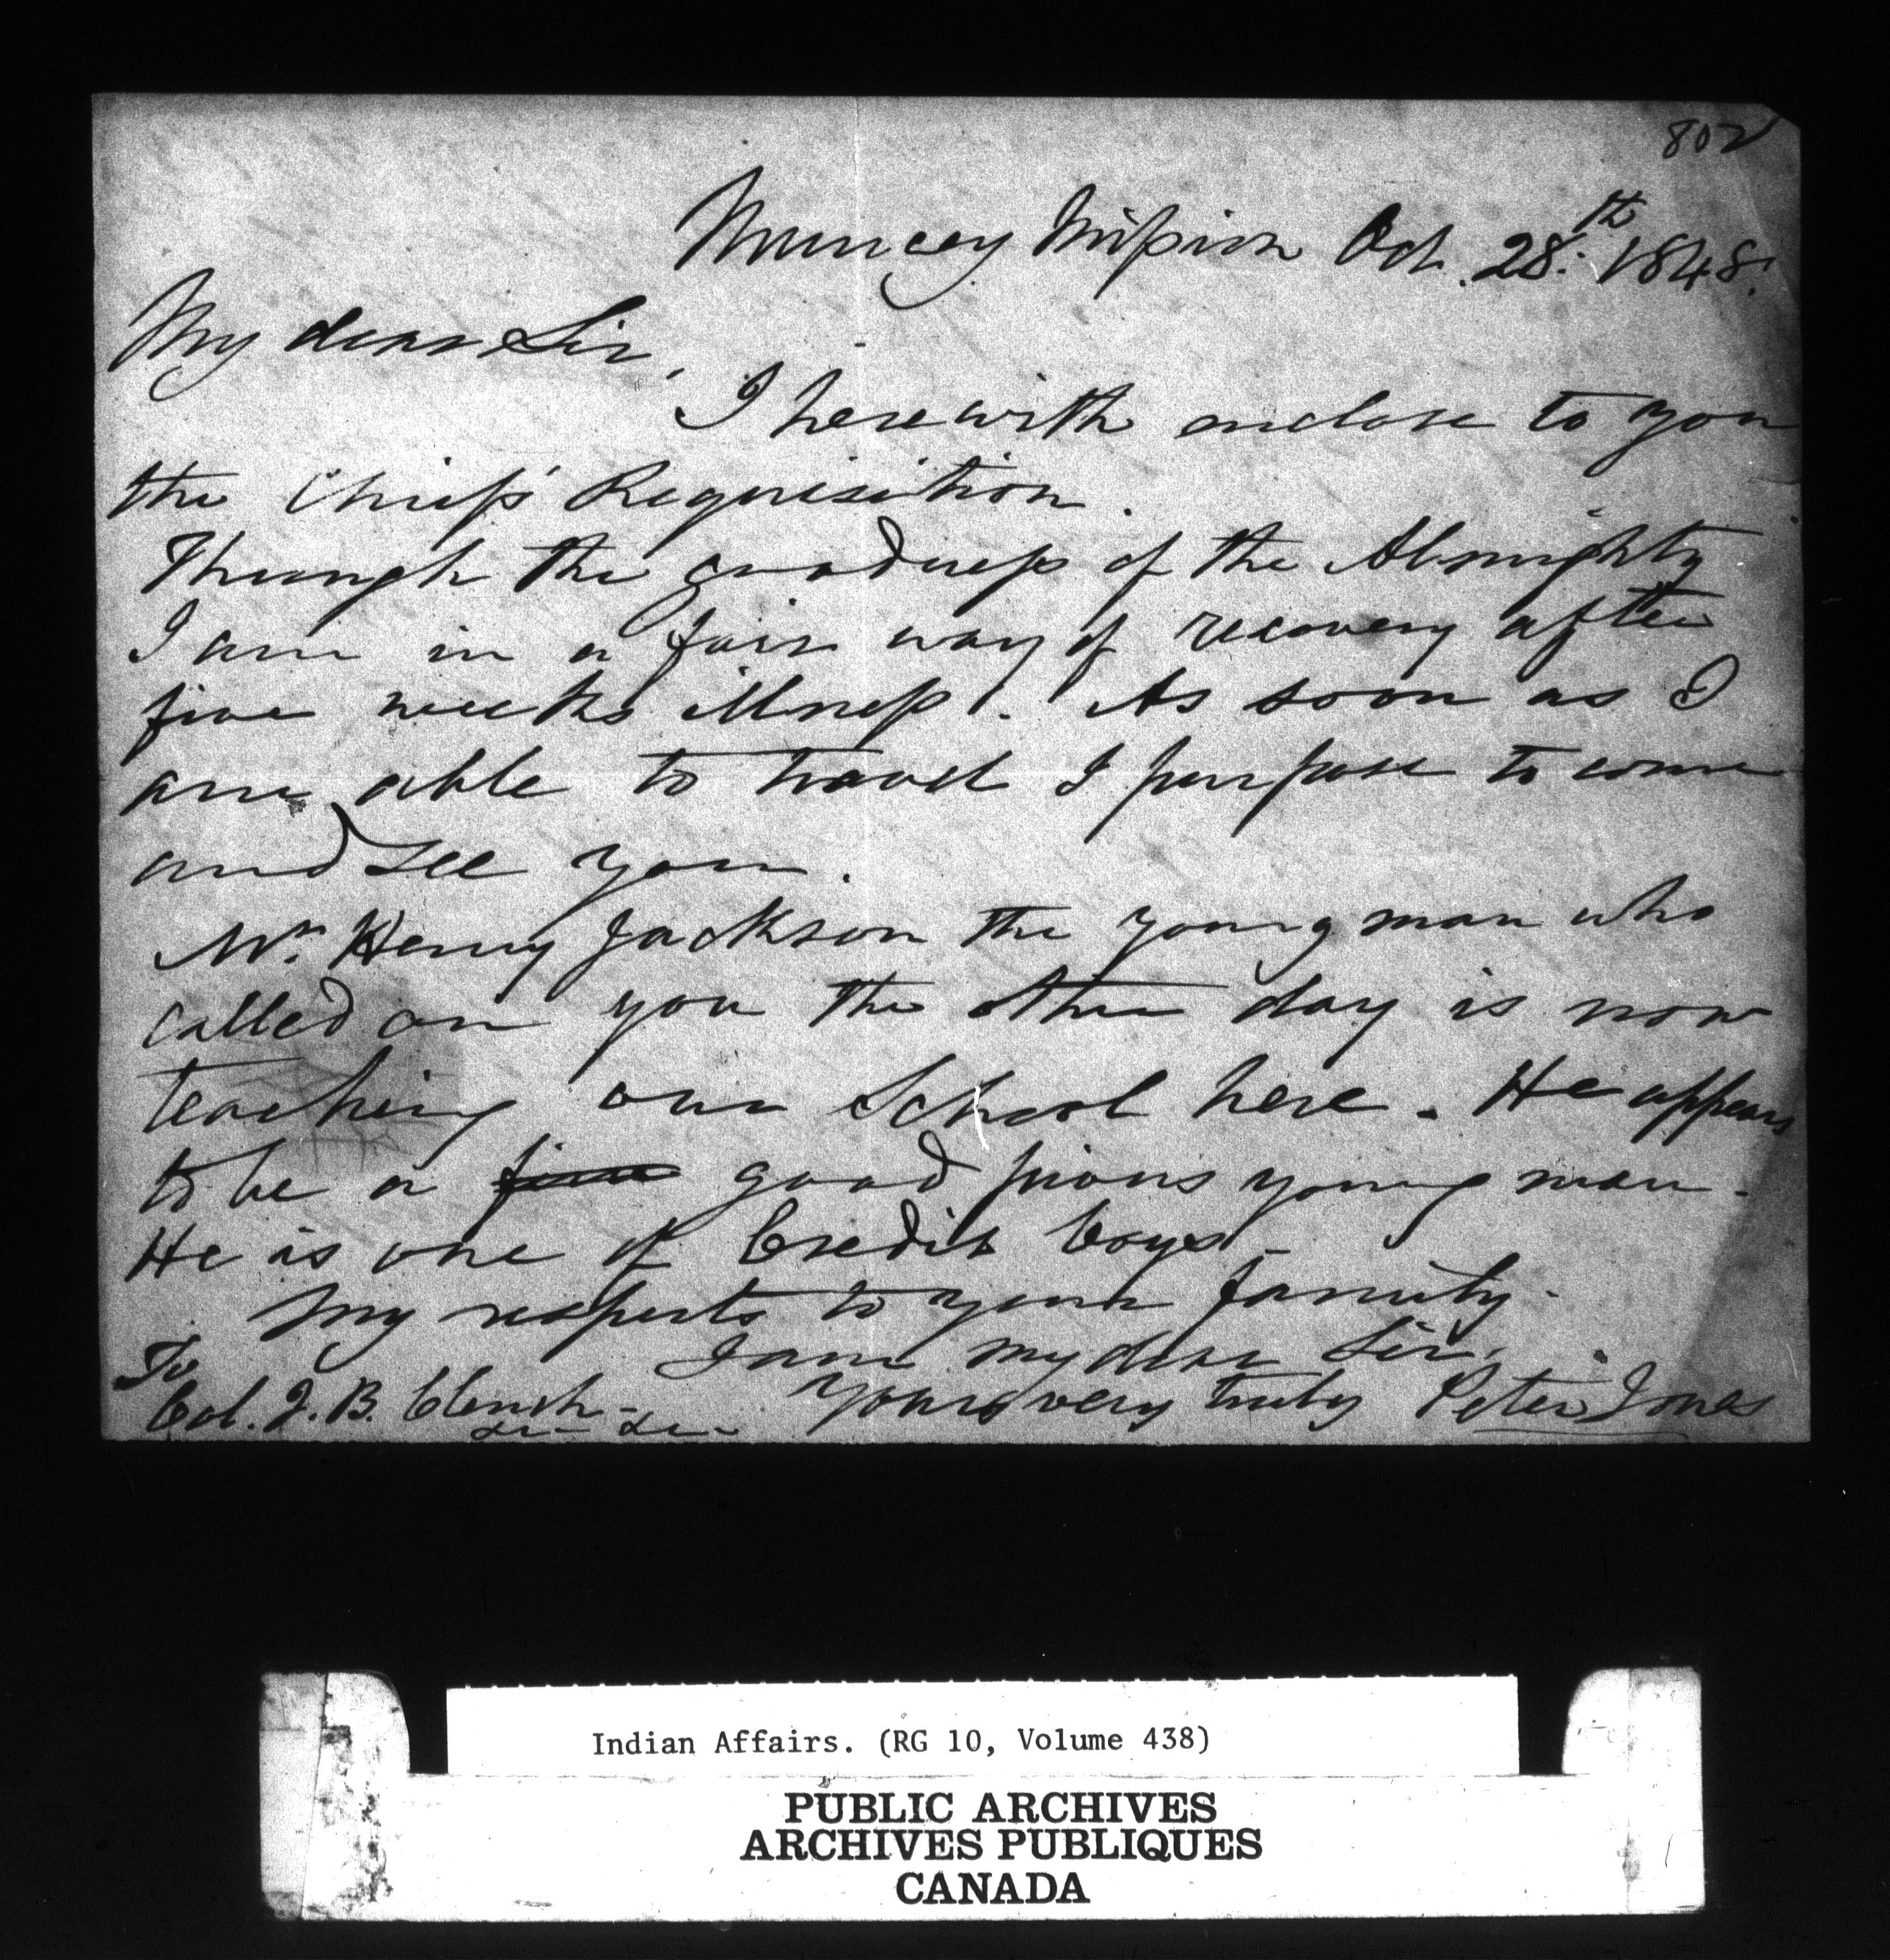 802
Muncey Mission Oct. 28.th 1848.
My dear Sir,
I herewith enclose to you
the Chiefs' Requisition.
Through the goodness of the Almighty
I am in a fair way of recovery after
five weeks illness. As soon as I
am able to travel I purpose to come
and see you.
Mr. Henry Jackson the young man who
called on you the other day is now
teaching our School here. He appears
to be a fine good pious young man.
He is one of Credit boys.
My respects to your family.
I am my dear Sir,
To
Yours very truly Peter Jones
Col. J. B. Clench
&c- &c-
Indian Affairs. (RG 10, Volume 438)
PUBLIC ARCHIVES
ARCHIVES PUBLIQUES
CANADA